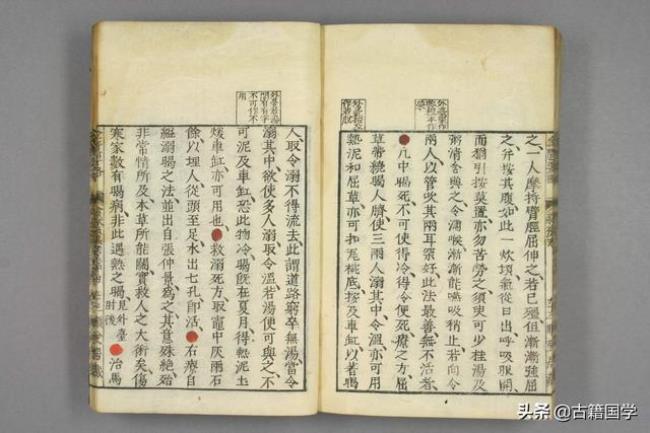 之、一人摩捋臂脛屈伸之、若已殭但漸漸強屈
之、并按其腹、如此一炊頃、氣從口出、呼吸眼開、
而猶引按莫置、亦勿苦勞之、須臾可少桂湯及
粥清含與之、令濡喉、漸漸能嚥吸稍止、若向令
兩人以管吹其兩耳、罙好、此法最善、無不活者、
凡中暍死、不可使得冷、得冷便死、療之方、屈
草帶繞暍人臍、使三兩人溺其中、令溫、亦可用
熱泥和屈草、亦可扣瓦椀底、按及車缸、以著暍
外臺若湯
間有有字
不可作不
用
人、取令溺不得流去、此謂道路窮卒無湯、當令
溺其中、欲使多人溺取令溫、若湯便可與之、不
可泥及車缸、恐此物冷、暍既在夏月、得熱泥土、
煖車缸、亦可用也、救溺死方、取竈中灰兩石
餘以埋人、從頭至足、水出七孔即活、右療自
縊溺暍之法、並出自張仲景為之、其意殊絕殆
非常情所及、本草所能關、實救人之大術矣、傷
寒家數有暍病、非此遇熱之暍、見外臺肘後治馬
头条@古籍国学